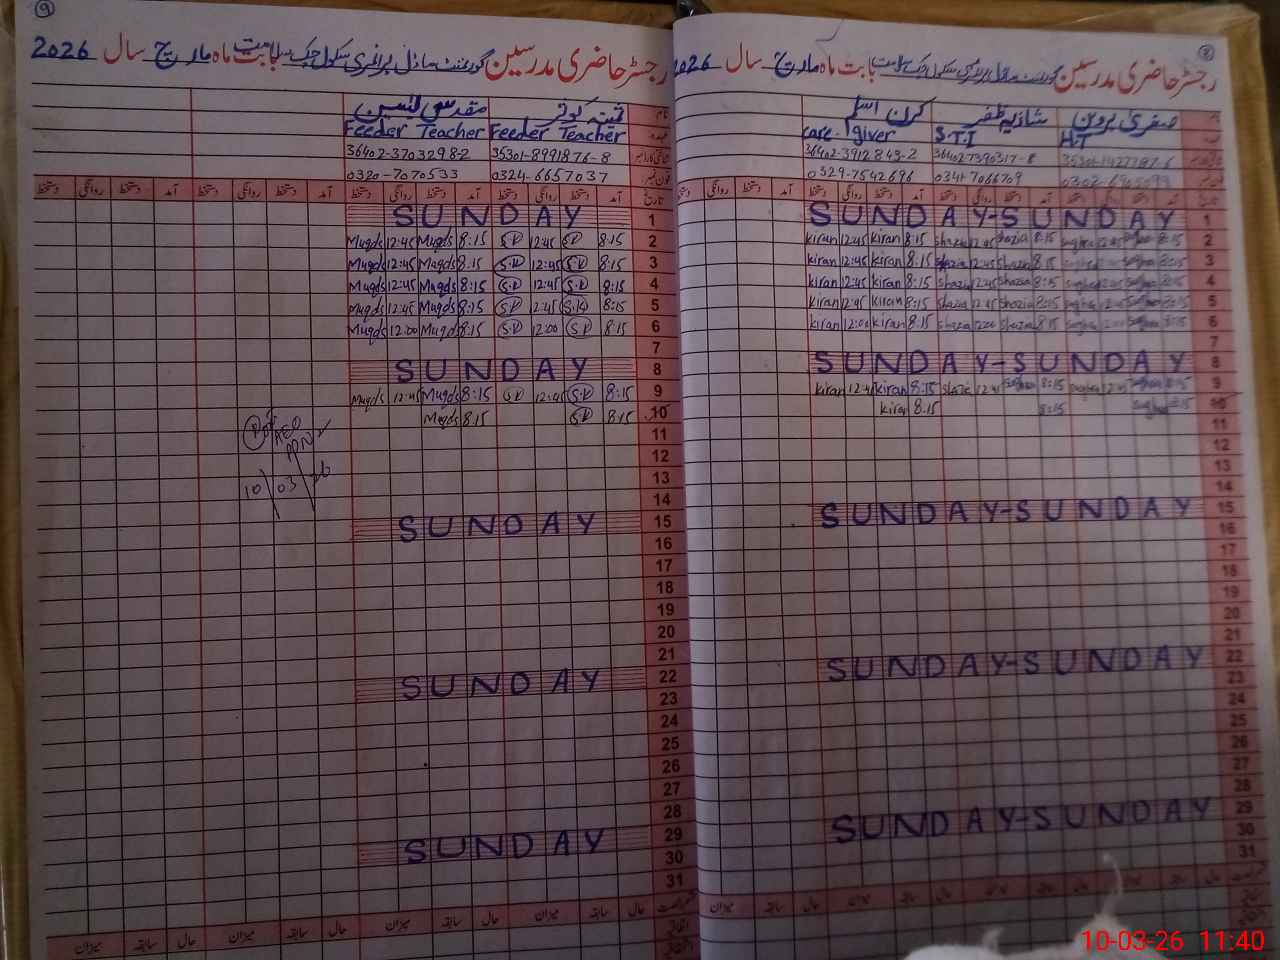 ۹
رجسٹر حاضری مدرسین گورنمنٹ ماڈل پرائمری سکول چک بابت ماہ مارچ سال 2026
نام ثمینہ کوثر مقدس یٰسین
عہدہ Feeder Teacher Feeder Teacher
35301-8991876-8 36402-3703298-2
0324-6657037 0320-7070533
تاریخ آمد دستخط روانگی دستخط آمد دستخط روانگی دستخط آمد دستخط روانگی دستخط آمد دستخط روانگی دستخط
1 SUNDAY
2 8:15 S.K 12:45 S.K 8:15 Muqds 12:45 Muqds
3 8:15 S.K 12:45 S.K 8:15 Muqds 12:45 Muqds
4 8:15 S.K 12:45 S.K 8:15 Muqds 12:45 Muqds
5 8:15 S.K 12:45 S.K 8:15 Muqds 12:45 Muqds
6 8:15 S.K 12:00 S.K 8:15 Muqds 12:00 Muqds
7
8 SUNDAY
9 8:15 S.K 12:45 S.K 8:15 Muqds 12:45 Muqds
10 8:15 S.K 8:15 Muqds
11
12
13
14
15 SUNDAY
16
17
18
19
20
21
22 SUNDAY
23
24
25
26
27
28
29 SUNDAY
30
31
AEO
10/03/26
حال سابقہ میزان حال سابقہ میزان حال سابقہ میزان حال سابقہ میزان
۸
رجسٹر حاضری مدرسین گورنمنٹ ماڈل پرائمری سکول چک بابت ماہ مارچ سال 2026
صغریٰ پروین شازیہ ظفر کرن اسلم
H.T S.T.I care giver
36402-7390317-8 36402-3912843-2
0341-7066709 0329-7542696
آمد دستخط روانگی دستخط آمد دستخط روانگی دستخط آمد دستخط روانگی دستخط آمد دستخط روانگی دستخط
1 SUNDAY-SUNDAY
2 8:15 Sughra 12:45 Sughra 8:15 Shazia 12:45 Shazia 8:15 kiran 12:45 kiran
3 8:15 Sughra 12:45 Sughra 8:15 Shazia 12:45 Shazia 8:15 kiran 12:45 kiran
4 8:15 Sughra 12:45 Sughra 8:15 Shazia 12:45 Shazia 8:15 kiran 12:45 kiran
5 8:15 Sughra 12:45 Sughra 8:15 Shazia 12:45 Shazia 8:15 kiran 12:45 kiran
6 8:15 Sughra 12:00 Sughra 8:15 Shazia 12:00 Shazia 8:15 kiran 12:00 kiran
7
8 SUNDAY-SUNDAY
9 8:15 Sughra 12:45 Sughra 8:15 12:45 Shazia 8:15 kiran 12:45 kiran
10 8:15 Sughra 8:15 8:15 kiran
11
12
13
14
15 SUNDAY-SUNDAY
16
17
18
19
20
21
22 SUNDAY-SUNDAY
23
24
25
26
27
28
29 SUNDAY-SUNDAY
30
31
حال سابقہ میزان حال سابقہ میزان حال سابقہ میزان حال سابقہ میزان
10-03-26 11:40